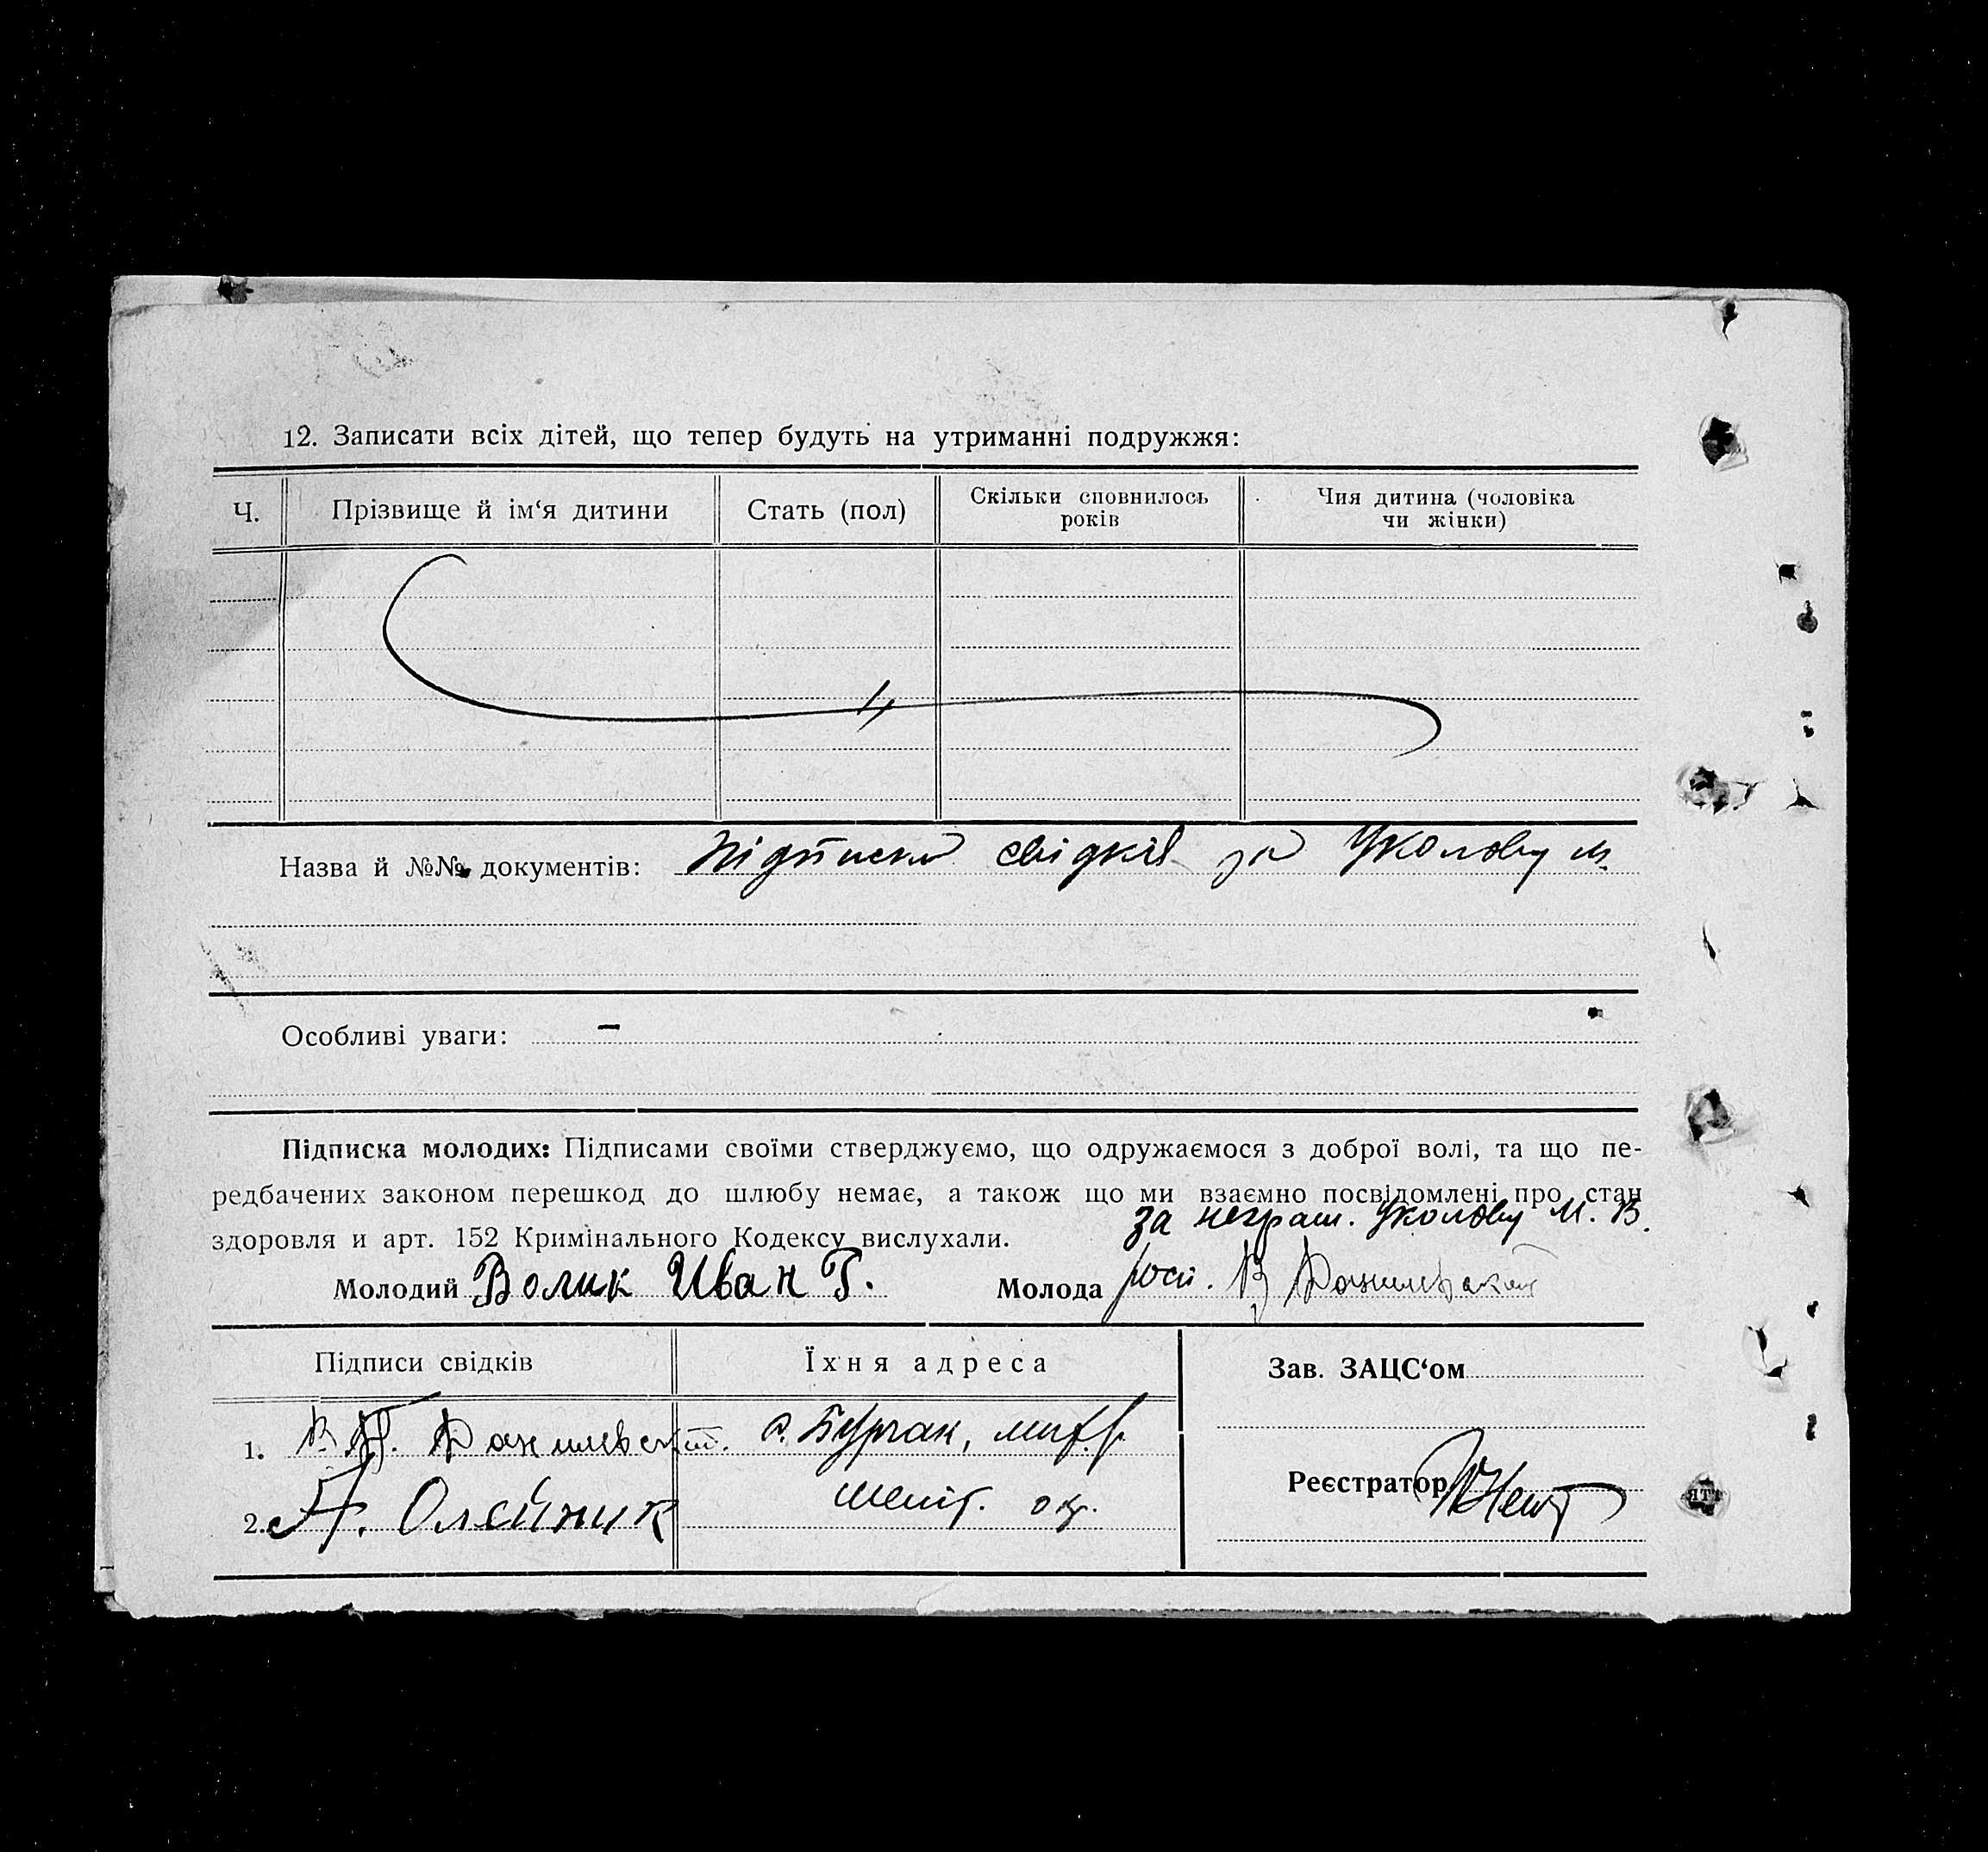 12. Записати всіх дітей, що тепер будуть на утриманні подружжя:
Ч. Прізвище й ім‘я дитини Стать (пол) Скільки сповнилось років Чия дитина (чоловіка чи жінки)
Назва й №№ документів: Підписка свідків за Уколову М.
Особливі уваги: –
Підписка молодих: Підписами своїми стверджуємо, що одружаємося з доброї волі, та що пе-
редбачених законом перешкод до шлюбу немає, а також що ми взаємно посвідомлені про стан
здоровля и арт. 152 Кримінального Кодексу вислухали.
за неграм. Уколову М. В.
Молодий Волик Иван Г. Молода В Данилевский
Підписи свідків Їхня адреса Зав. ЗАЦС‘ом
1. В. Данилевский.
2. А. Олейник окр.
Реєстратор